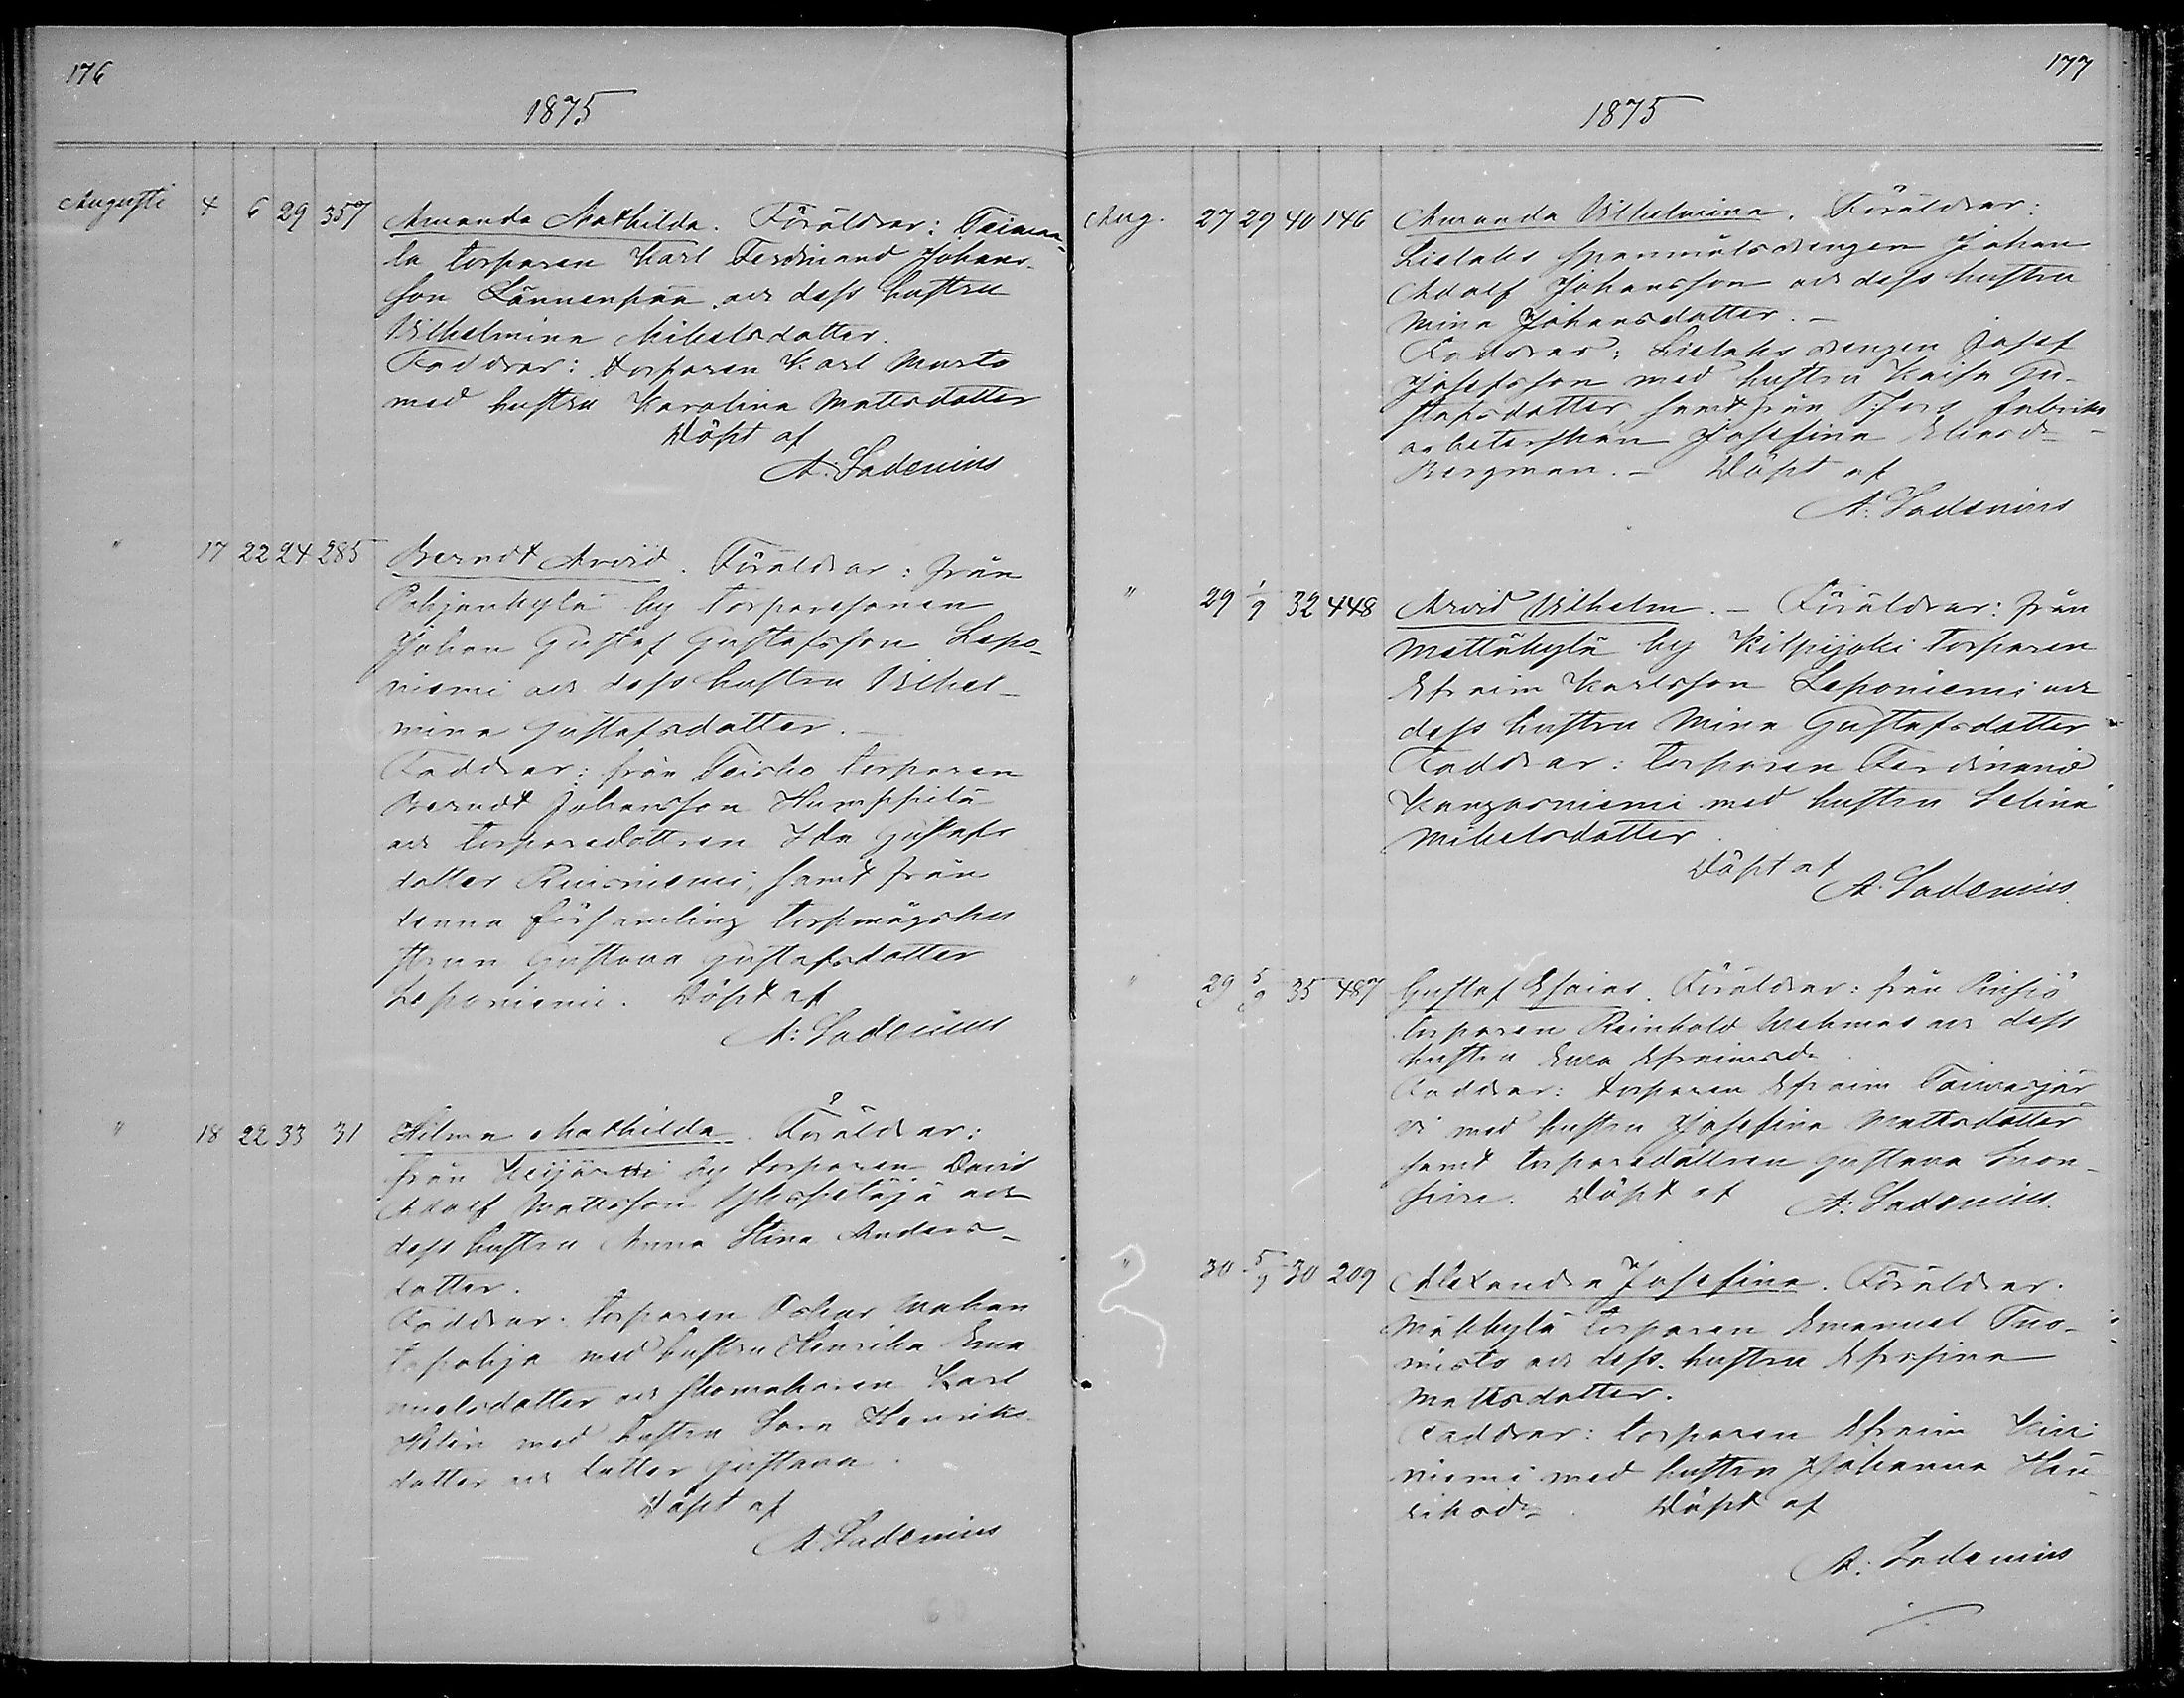 176
1875
Augusti 4 6 29 357 Amanda Mathilda. Föräldrar:
la torparen Karl Ferdinand Johans-
son Lännenpää och dess hustru
Vilhelmina Mikelsdotter.
Faddrar: torparen Karl Murto
med hustru Karolina Mattsdotter
Döpt af
A: Ladenius
" 17 22 24 285 Berndt Arvid. Föräldrar: från
Pohjankylä by torparesonen
Johan Gustaf Gustafsson Lepo-
niemi och dess hustru Vilhel-
mina Gustafsdotter. –
Faddrar: från Teisko torparen
Berndt Johansson Humppila
och torparedottren Ida Gustafs
dotter Ruisniemi, samt från
denna församling
Gustava Gustafsdotter
Leponiemi. Döpt af
A: Ladenius
" 18 22 33 31 Hilma Mathilda. Föräldrar:
från by torparen David
Adolf Mattsson och
dess hustru Anna Stina Anders-
dotter.
Faddrar: torparen Oskar
med hustru Henrika Ema
nuelsdotter och skomakaren Karl
med hustru Sara Henriks-
dotter och dotter Gustava.
Döpt af
A. Ladenius
177
1875
Aug. 27 29 40 146 Amanda Vilhelmina. Föräldrar:
Lielaks spannmålsdrengen Johan
Adolf Johansson och dess hustru
Mina Johansdotter. –
Faddrar: Lielaks drengen Josef
Josefsson med hustru Kaisa Gu-
stafsdotter samt från T:fors fabriks
arbeterskan Josefina
Bergman. – Döpt af
A: Ladenius
" 29 1/9 32 448 Arvid Vilhelm. – Föräldrar: från
Mettäkylä by Kilpijoki torparen
Efraim Karlsson Leponiemi och
dess hustru Mina Gustafsdotter
Faddrar: torparen Ferdinand
Kangasniemi med hustru Selina
Mikelsdotter
Döpt af
A. Ladenius.
" 29 5/9 35 487 Gustaf Esaias. Föräldrar: från Pinsiö
torparen Reinhold Wehmas och dess
hustru Eva Efraimsdr
Faddrar: torparen Efraim Taivarjär
vi med hustru Josefina Mattsdotter
samt torparedottren Gustava
Döpt af A: Ladenius.
" 30 5/9 30 209 Alexandra Josefina. Föräldrar.
Mäkkylä torparen Emanuel Tuo-
misto och dess hustru Efrosina
Mattsdotter.
Faddrar: torparen Efraim Kivi
niemi med hustru Johanna Hen-
riksdr. Döpt af
A. Ladenius